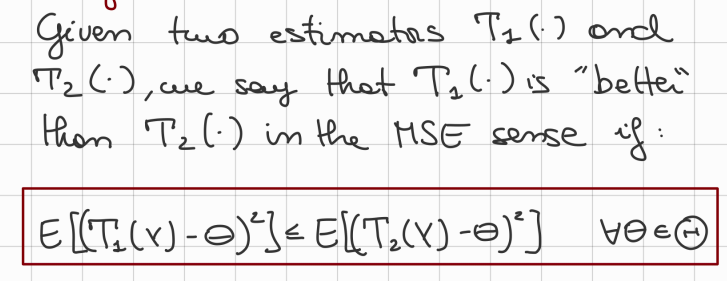 Given two estimators T₁(·) and
T₂(·), we say that T₁(·) is "better"
than T₂(·) in the MSE sense if:
E[(T₁(Y)-θ)²] ≤ E[(T₂(Y)-θ)²] ∀θ∈Θ